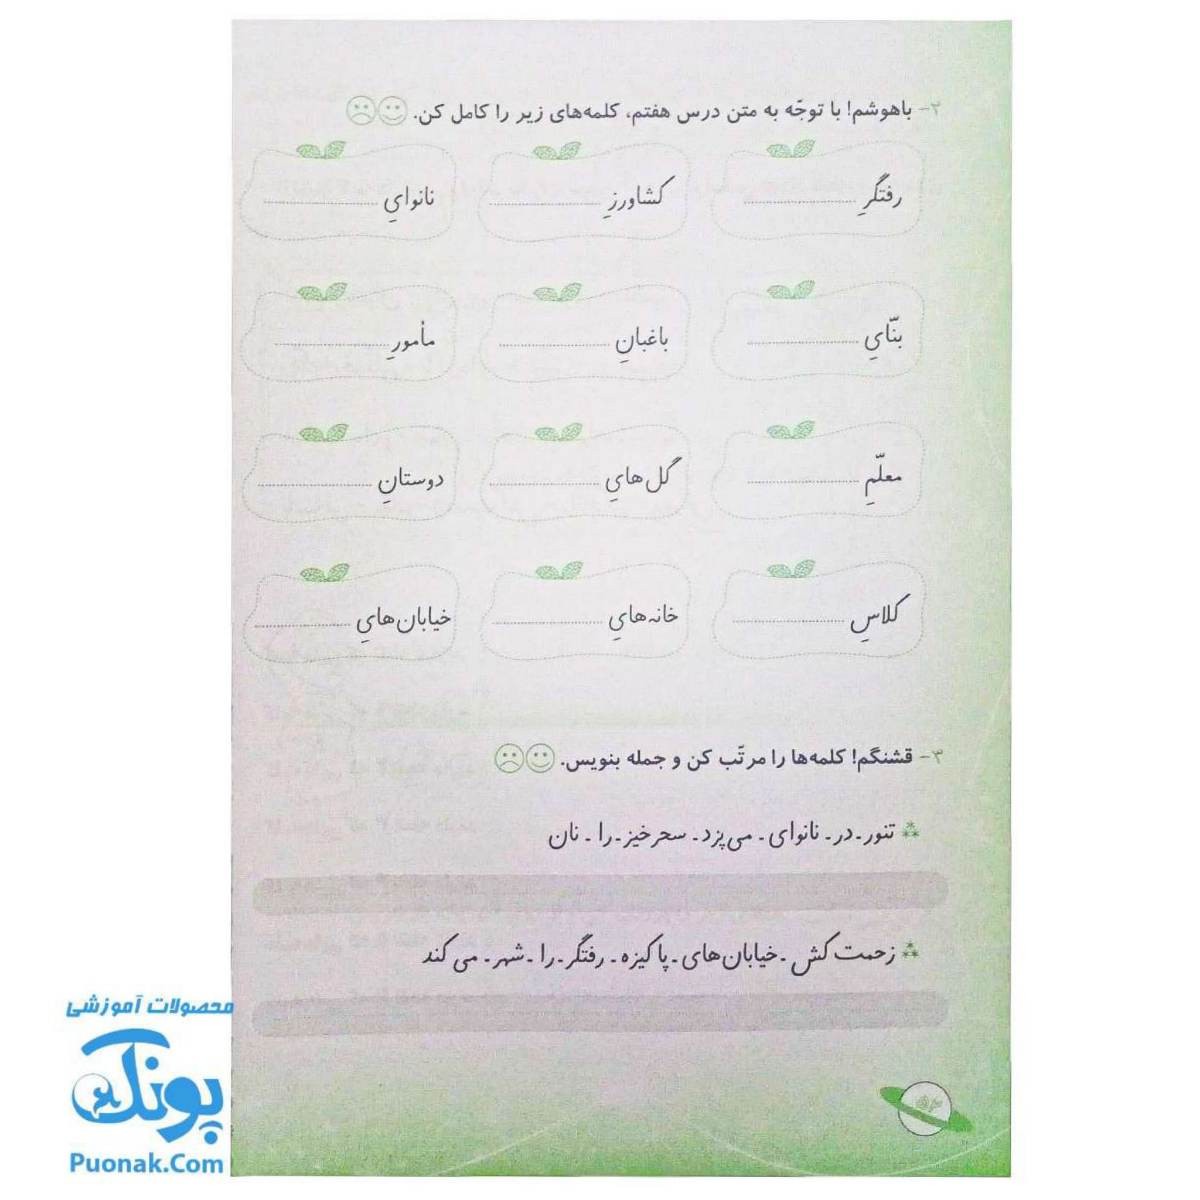 ۲- باهوشم! با توجّه به متن درس هفتم، کلمه‌های زیر را کامل کن.
رفتگرِ ............ کشاورزِ ............ نانوایِ ............
بنّایِ ............ باغبانِ ............ مأمورِ ............
معلّمِ ............ گل‌هایِ ............ دوستانِ ............
کلاسِ ............ خانه‌هایِ ............ خیابان‌هایِ ............
۳- قشنگم! کلمه‌ها را مرتّب کن و جمله بنویس.
تنور - در - نانوای - می‌پزد - سحرخیز - را - نان
زحمت‌کش - خیابان‌های - پاکیزه - رفتگر - را - شهر - می‌کند
محصولات آموزشی
پونک
Puonak.Com